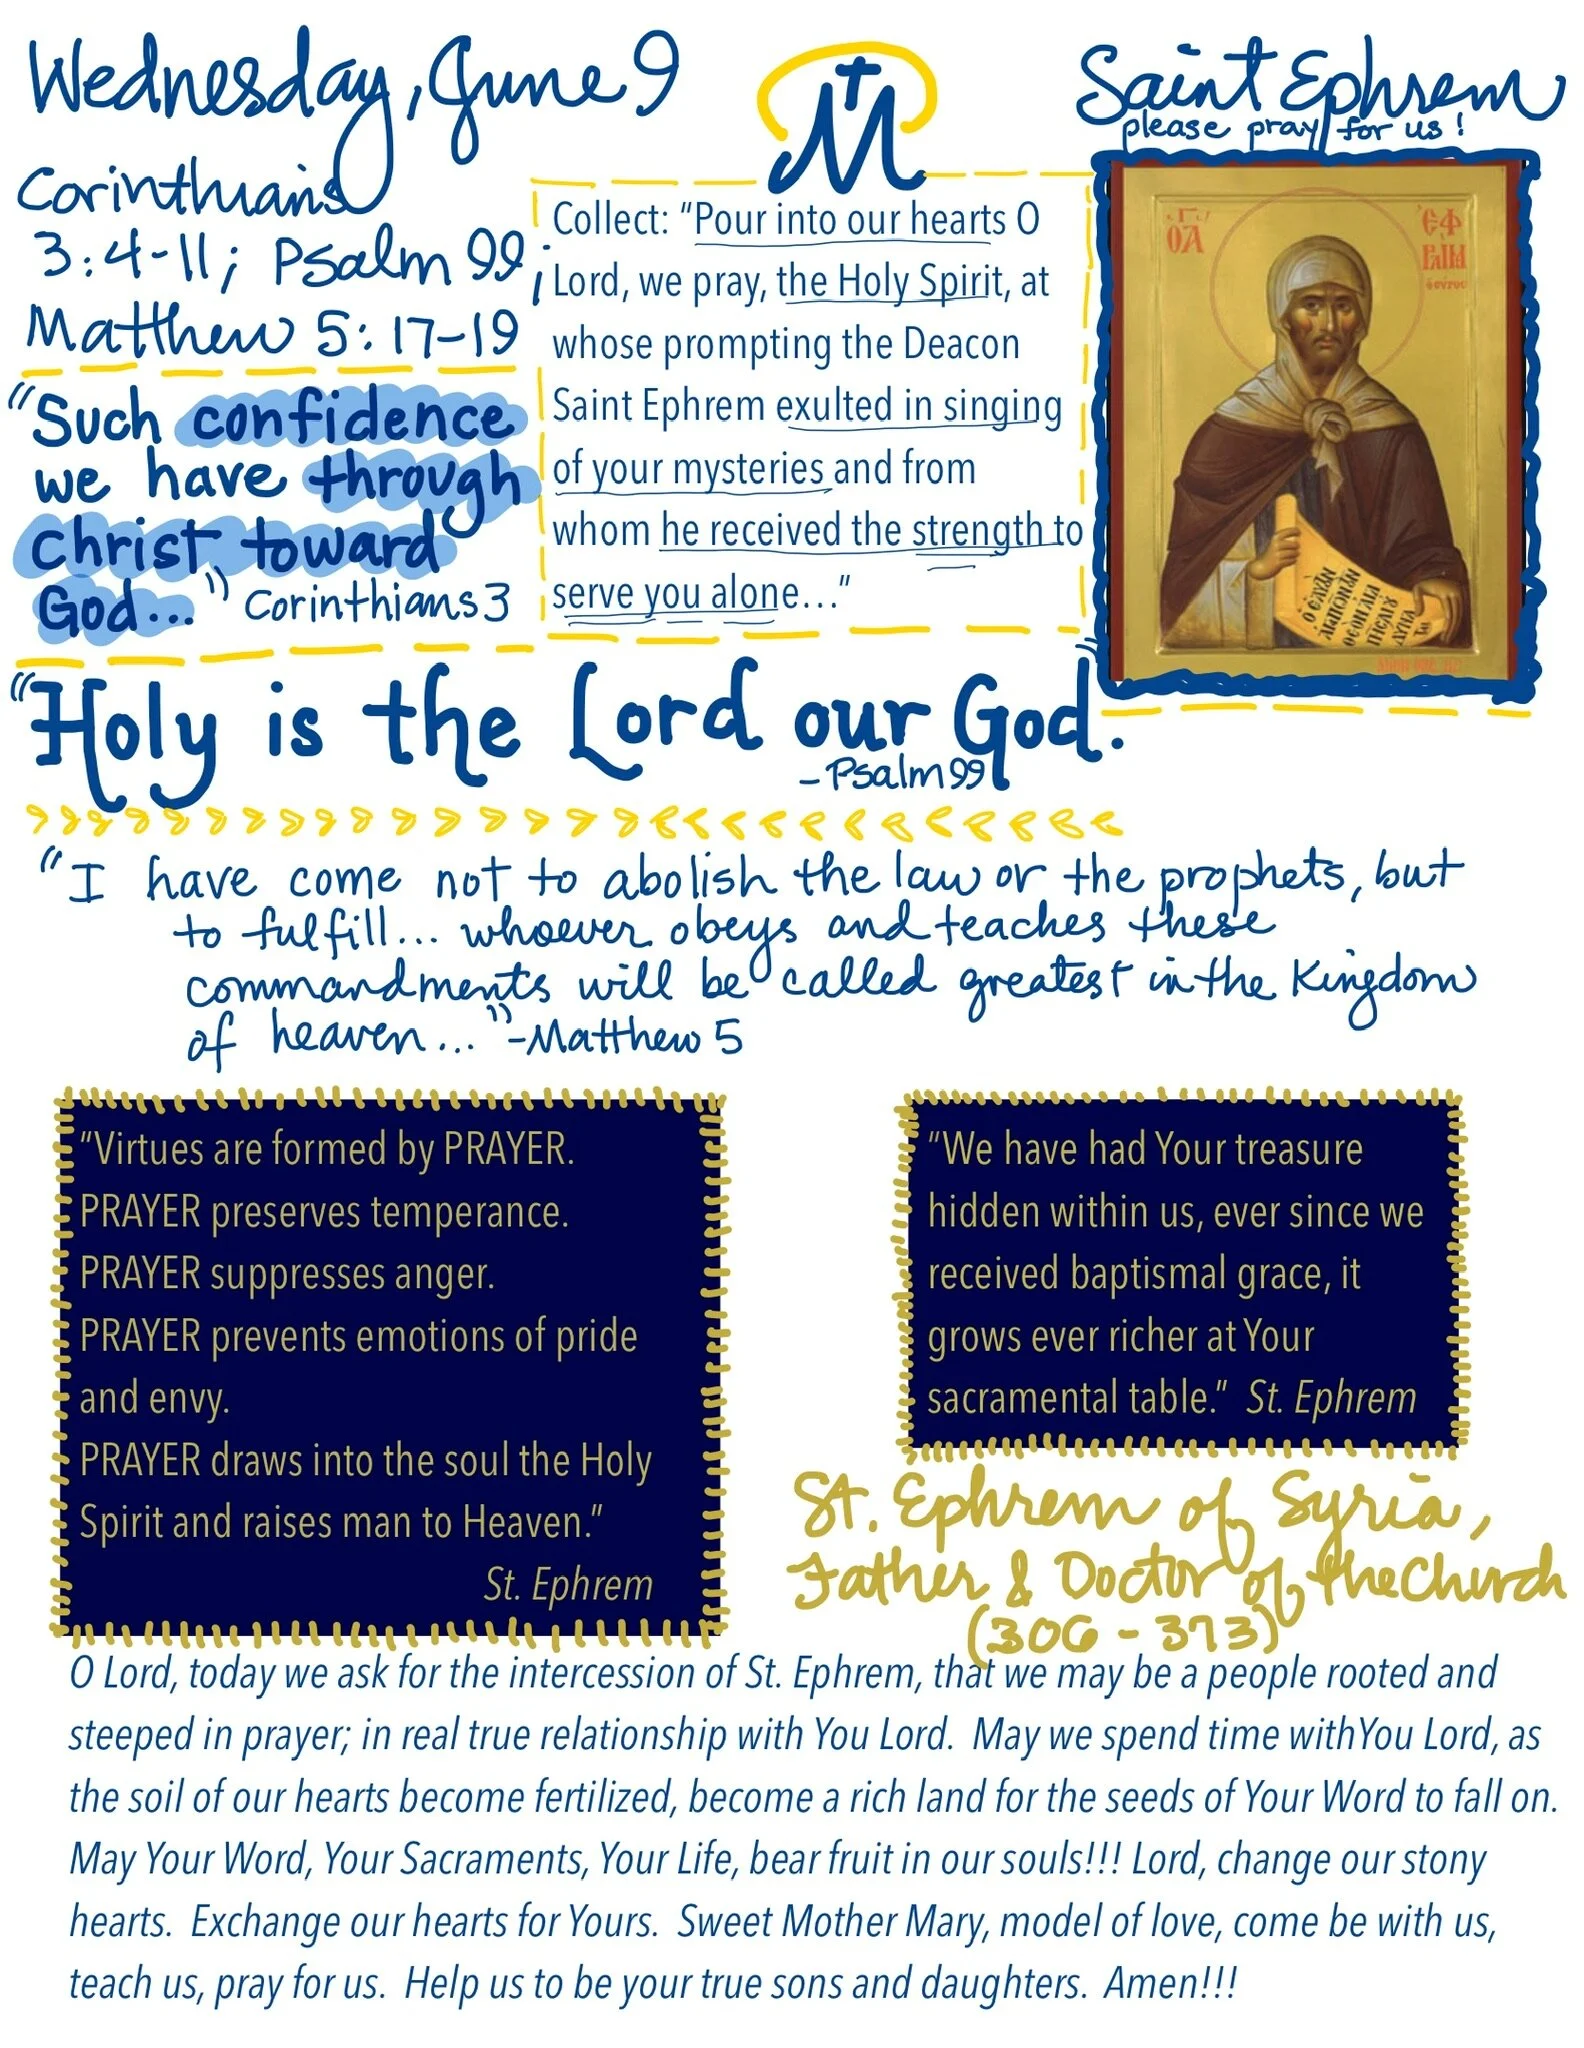 Wednesday, June 9
M
Saint Ephrem
please pray for us!
Corinthians
3:4-11; Psalm 99;
Matthew 5:17-19
"Such confidence
we have through
Christ toward
God..." Corinthians 3
Collect: "Pour into our hearts O
Lord, we pray, the Holy Spirit, at
whose prompting the Deacon
Saint Ephrem exulted in singing
of your mysteries and from
whom he received the strength to
serve you alone..."
"Holy is the Lord our God."
-Psalm 99
"I have come not to abolish the law or the prophets, but
to fulfill... whoever obeys and teaches these
commandments will be called greatest in the Kingdom
of heaven..." -Matthew 5
"Virtues are formed by PRAYER.
PRAYER preserves temperance.
PRAYER suppresses anger.
PRAYER prevents emotions of pride
and envy.
PRAYER draws into the soul the Holy
Spirit and raises man to Heaven."
St. Ephrem
"We have had Your treasure
hidden within us, ever since we
received baptismal grace, it
grows ever richer at Your
sacramental table." St. Ephrem
St. Ephrem of Syria,
Father & Doctor of the Church
(306-373)
O Lord, today we ask for the intercession of St. Ephrem, that we may be a people rooted and
steeped in prayer; in real true relationship with You Lord. May we spend time withYou Lord, as
the soil of our hearts become fertilized, become a rich land for the seeds of Your Word to fall on.
May Your Word, Your Sacraments, Your Life, bear fruit in our souls!!! Lord, change our stony
hearts. Exchange our hearts for Yours. Sweet Mother Mary, model of love, come be with us,
teach us, pray for us. Help us to be your true sons and daughters. Amen!!!